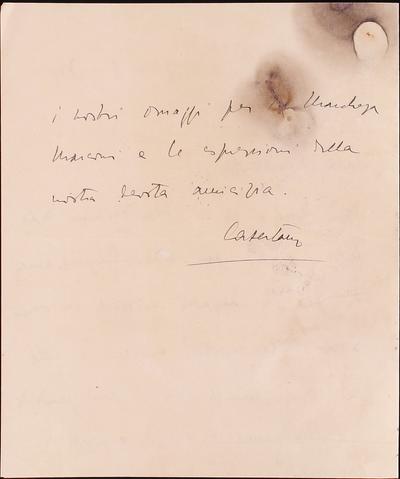 i nostri omaggi per la Marchesa
Marconi e le espressioni della
nostra devota amicizia.
Casertano